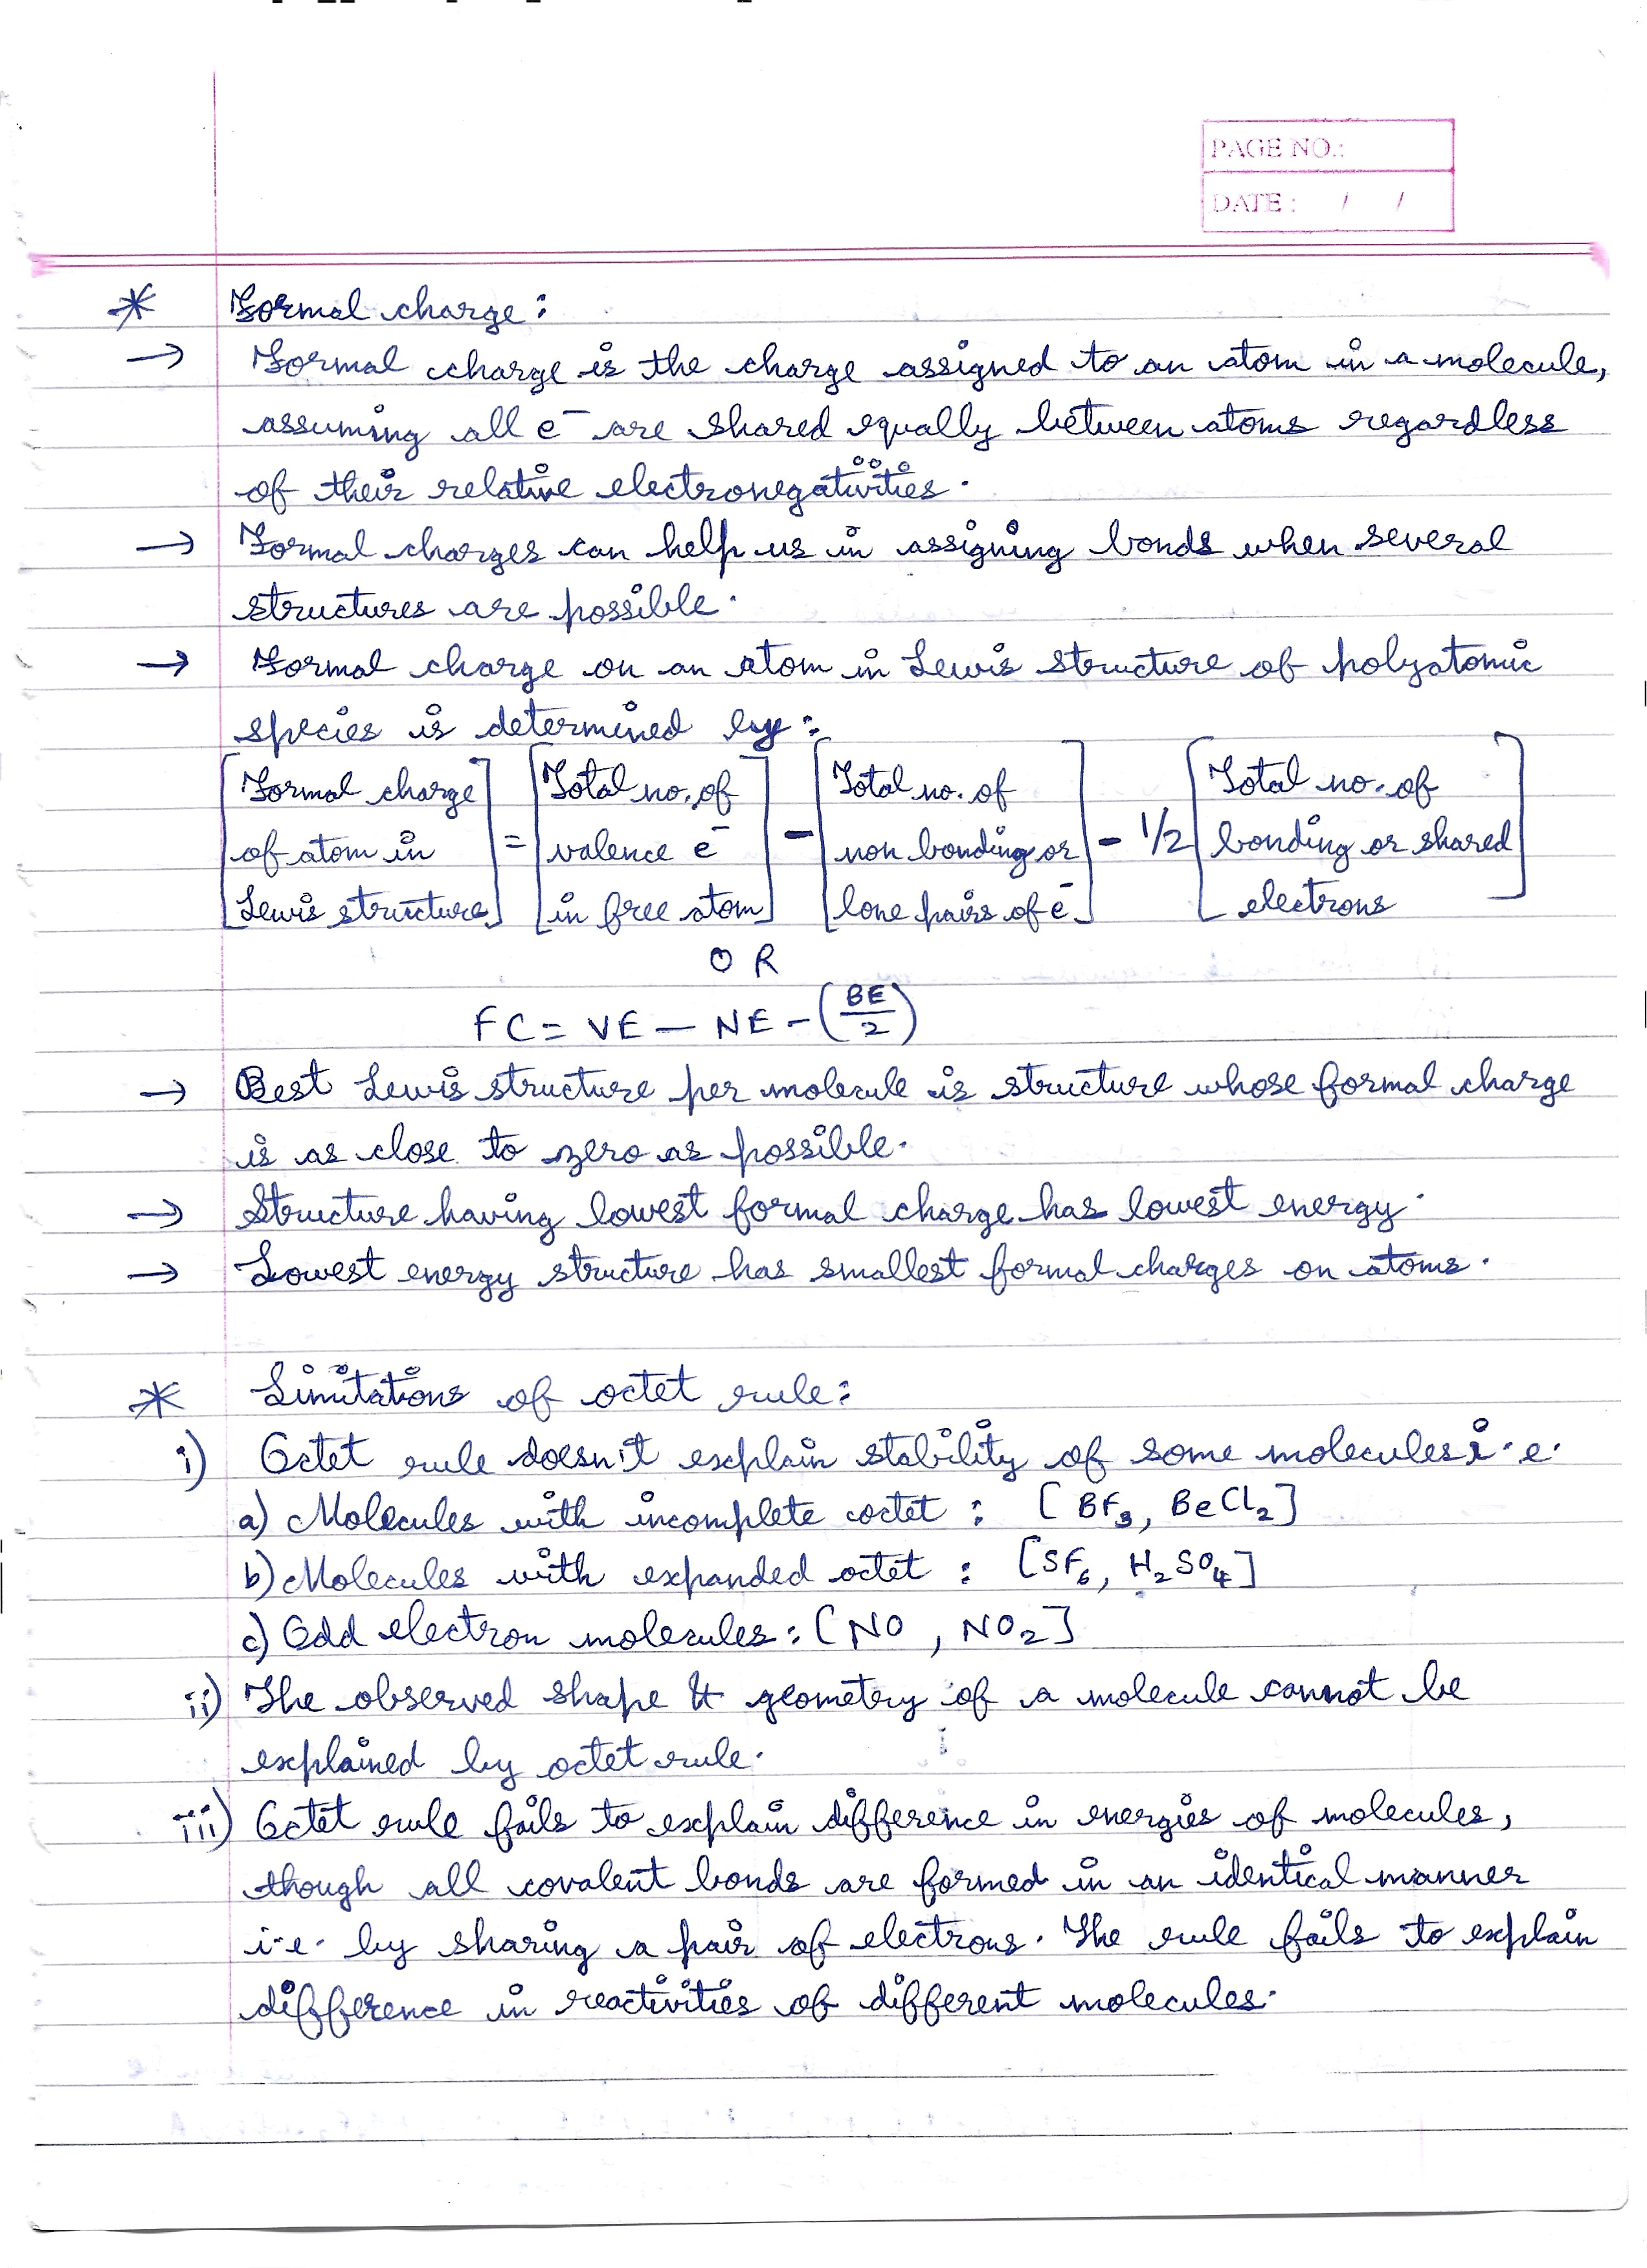 PAGE NO.:
DATE : / /
* Formal charge:
→ Formal charge is the charge assigned to an atom in a molecule,
assuming all e⁻ are shared equally between atoms regardless
of their relative electronegativities.
→ Formal charges can help us in assigning bonds when several
structures are possible.
→ Formal charge on an atom in Lewis structure of polyatomic
species is determined by:
[Formal charge of atom in Lewis structure] = [Total no. of valence e⁻ in free atom] - [Total no. of non bonding or lone pairs of e⁻] - 1/2 [Total no. of bonding or shared electrons]
OR
FC = VE — NE - (BE/2)
→ Best Lewis structure per molecule is structure whose formal charge
is as close to zero as possible.
→ Structure having lowest formal charge has lowest energy.
→ Lowest energy structure has smallest formal charges on atoms.
* Limitations of octet rule:
i) Octet rule doesn't explain stability of some molecules i.e.
a) Molecules with incomplete octet : [BF₃, BeCl₂]
b) Molecules with expanded octet : [SF₆, H₂SO₄]
c) Odd electron molecules : [NO , NO₂]
ii) The observed shape & geometry of a molecule cannot be
explained by octet rule.
iii) Octet rule fails to explain difference in energies of molecules,
though all covalent bonds are formed in an identical manner
i.e. by sharing a pair of electrons. The rule fails to explain
difference in reactivities of different molecules.